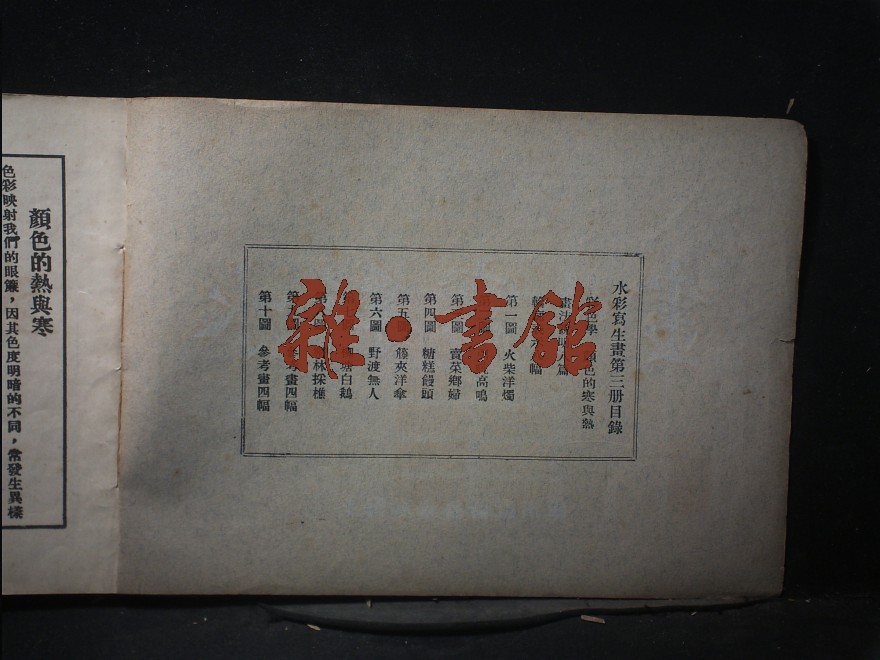 水彩寫生畫第三册目錄
色學 顏色的寒與熱
畫法 篇
幅
第一圖 火柴洋燭
高鳴
第 圖 賣菜鄉婦
第四圖 糖糕饅頭
第五圖 藤夾洋傘
第六圖 野渡無人
第 塘白鵝
第 林採樵
第 考畫四幅
第十圖 參考畫四幅
顏色的熱與寒
色彩映射我們的眼簾，因其色度明暗的不同，常發生異樣
雜·書館